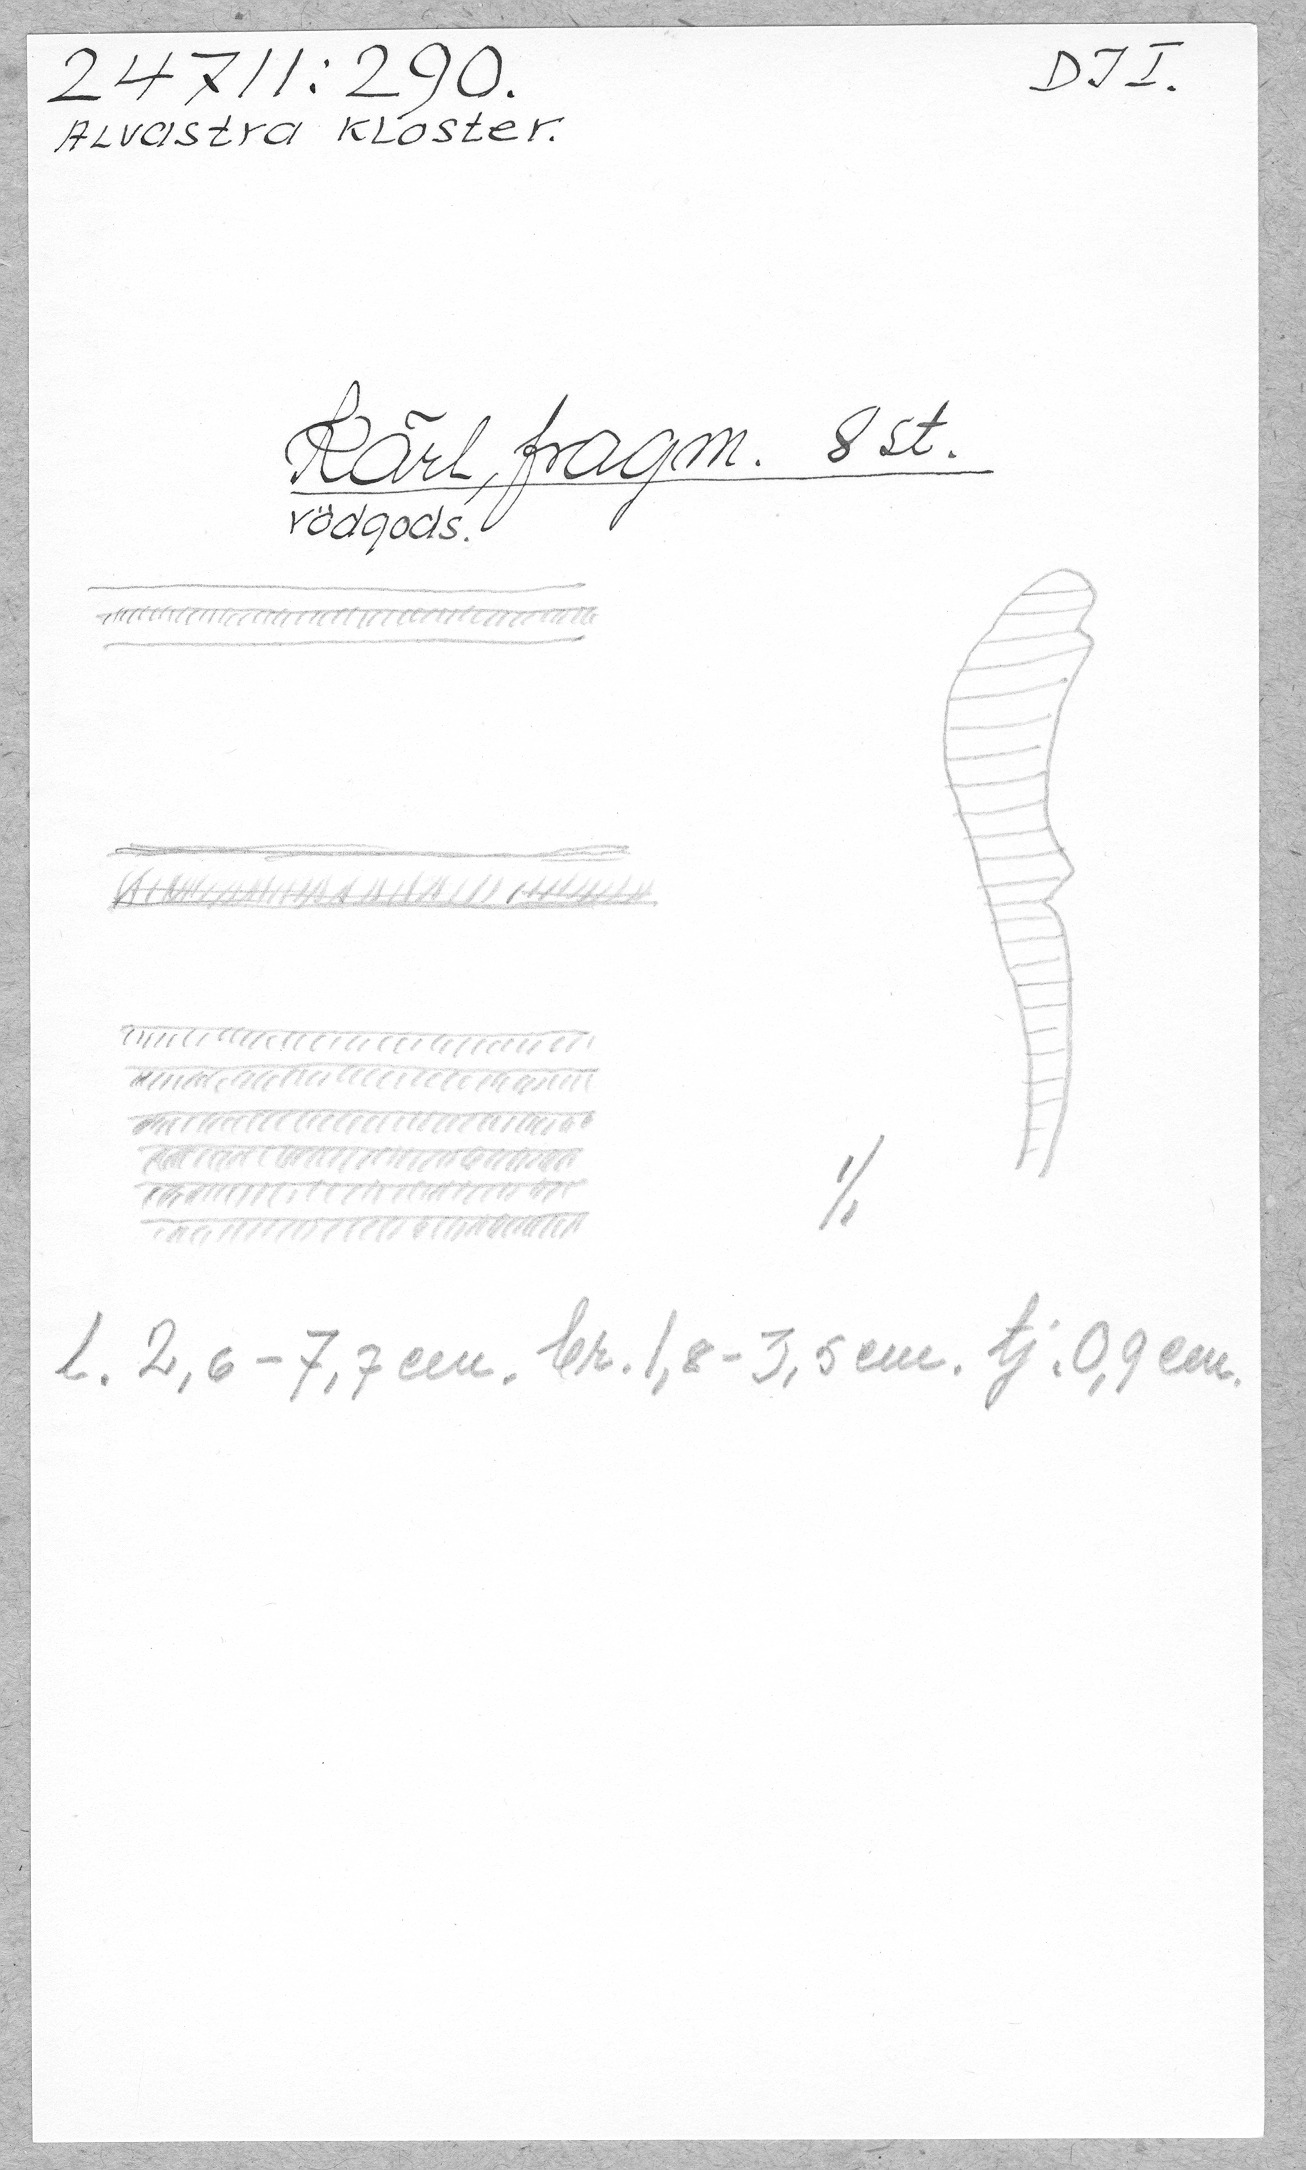 24711:290.
DJ I.
Alvastra Kloster.
Kärl, fragm. 8 st.
rödgods.
1/1
L. 2,6-7,7 cm. br. 1,8-3,5 cm. tj. 0,9 cm.